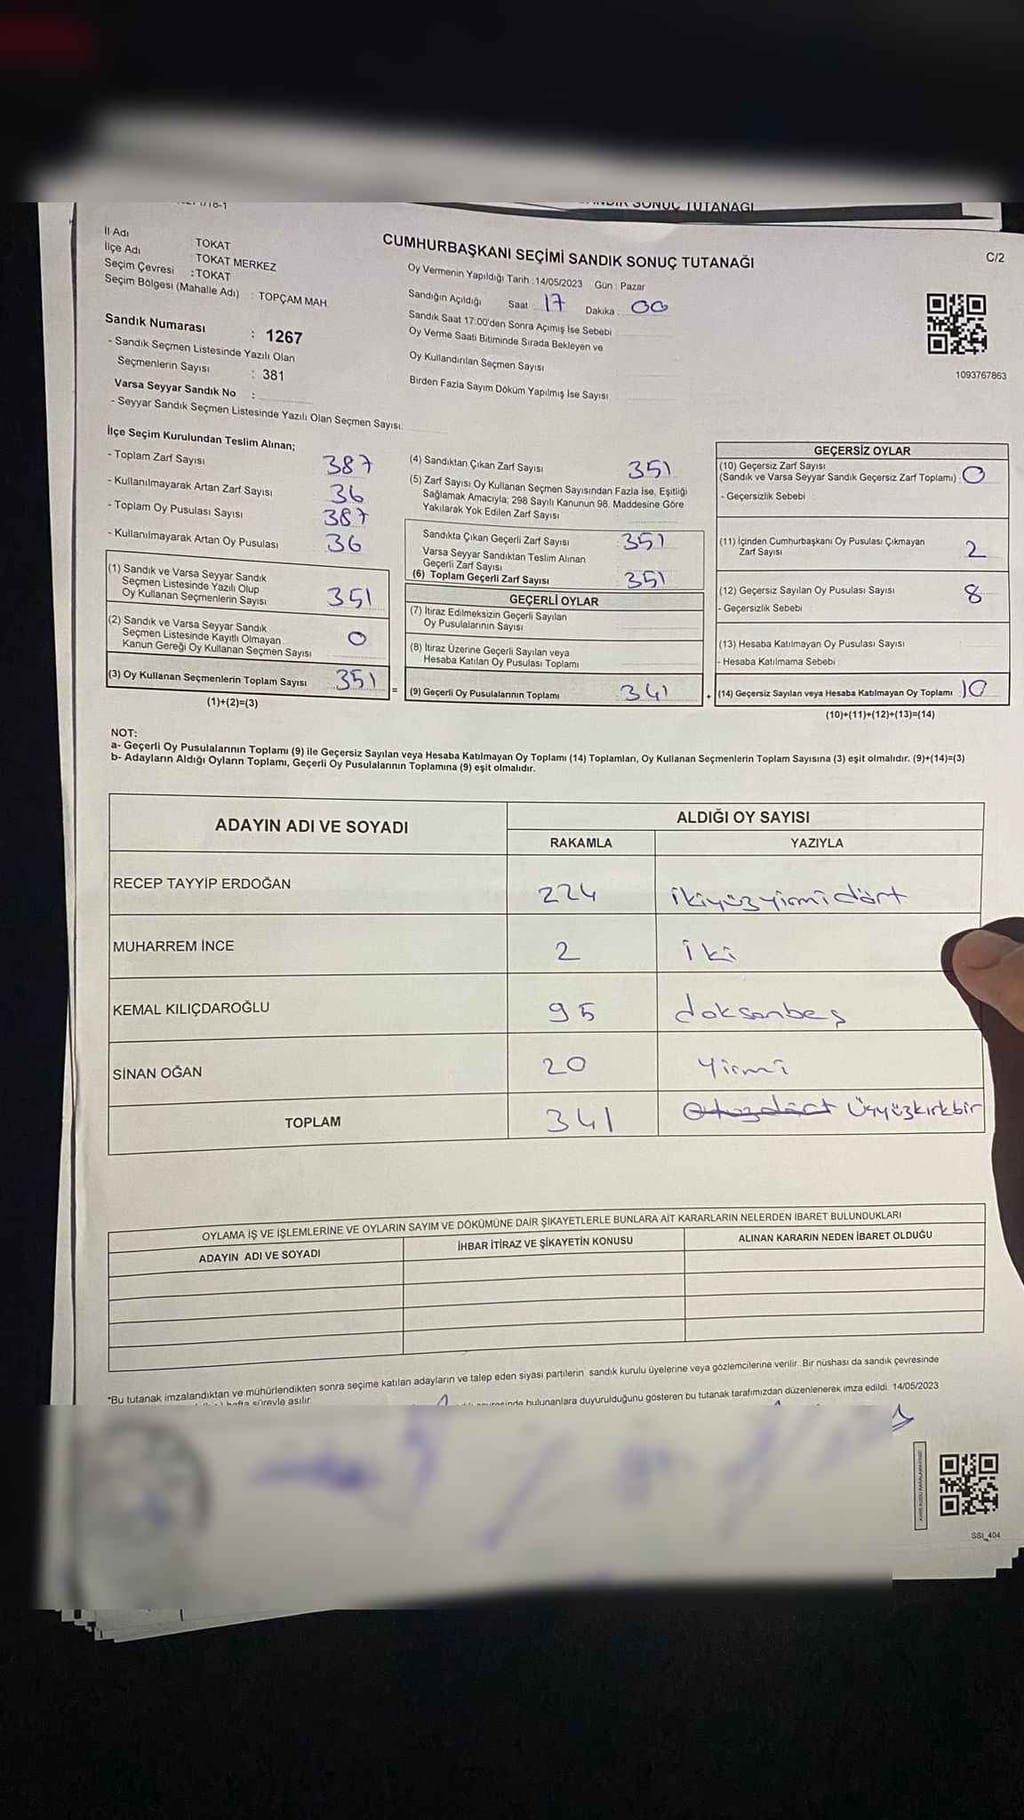 SANDIK SONUÇ TUTANAĞI
CUMHURBAŞKANI SEÇİMİ SANDIK SONUÇ TUTANAĞI
C/2
İl Adı TOKAT
İlçe Adı TOKAT MERKEZ
Seçim Çevresi : TOKAT
Seçim Bölgesi (Mahalle Adı) : TOPÇAM MAH
Oy Vermenin Yapıldığı Tarih : 14/05/2023 Gün : Pazar
Sandığın Açıldığı Saat 17 Dakika : 00
Sandık Saat 17:00'den Sonra Açımış İse Sebebi
Oy Verme Saati Bitiminde Sırada Bekleyen ve
Oy Kullandırılan Seçmen Sayısı
Birden Fazla Sayım Döküm Yapılmış İse Sayısı
1093767863
Sandık Numarası : 1267
- Sandık Seçmen Listesinde Yazılı Olan
Seçmenlerin Sayısı : 381
Varsa Seyyar Sandık No :
- Seyyar Sandık Seçmen Listesinde Yazılı Olan Seçmen Sayısı:
İlçe Seçim Kurulundan Teslim Alınan;
- Toplam Zarf Sayısı 387
- Kullanılmayarak Artan Zarf Sayısı 36
- Toplam Oy Pusulası Sayısı 387
- Kullanılmayarak Artan Oy Pusulası 36
(1) Sandık ve Varsa Seyyar Sandık
Seçmen Listesinde Yazılı Olup
Oy Kullanan Seçmenlerin Sayısı 351
(2) Sandık ve Varsa Seyyar Sandık
Seçmen Listesinde Kayıtlı Olmayan
Kanun Gereği Oy Kullanan Seçmen Sayısı 0
(3) Oy Kullanan Seçmenlerin Toplam Sayısı 351
(1)+(2)=(3)
=
(4) Sandıktan Çıkan Zarf Sayısı 351
(5) Zarf Sayısı Oy Kullanan Seçmen Sayısından Fazla İse, Eşitliği
Sağlamak Amacıyla; 298 Sayılı Kanunun 98. Maddesine Göre
Yakılarak Yok Edilen Zarf Sayısı
Sandıkta Çıkan Geçerli Zarf Sayısı 351
Varsa Seyyar Sandıktan Teslim Alınan
Geçerli Zarf Sayısı
(6) Toplam Geçerli Zarf Sayısı 351
GEÇERLİ OYLAR
(7) İtiraz Edilmeksizin Geçerli Sayılan
Oy Pusulalarının Sayısı
(8) İtiraz Üzerine Geçerli Sayılan veya
Hesaba Katılan Oy Pusulası Toplamı
(9) Geçerli Oy Pusulalarının Toplamı 341
+
GEÇERSİZ OYLAR
(10) Geçersiz Zarf Sayısı
(Sandık ve Varsa Seyyar Sandık Geçersiz Zarf Toplamı) 0
- Geçersizlik Sebebi
(11) İçinden Cumhurbaşkanı Oy Pusulası Çıkmayan
Zarf Sayısı 2
(12) Geçersiz Sayılan Oy Pusulası Sayısı 8
- Geçersizlik Sebebi
(13) Hesaba Katılmayan Oy Pusulası Sayısı
- Hesaba Katılmama Sebebi
(14) Geçersiz Sayılan veya Hesaba Katılmayan Oy Toplamı 10
(10)+(11)+(12)+(13)=(14)
NOT:
a- Geçerli Oy Pusulalarının Toplamı (9) ile Geçersiz Sayılan veya Hesaba Katılmayan Oy Toplamı (14) Toplamları, Oy Kullanan Seçmenlerin Toplam Sayısına (3) eşit olmalıdır. (9)+(14)=(3)
b- Adayların Aldığı Oyların Toplamı, Geçerli Oy Pusulalarının Toplamına (9) eşit olmalıdır.
ADAYIN ADI VE SOYADI ALDIĞI OY SAYISI
RAKAMLA YAZIYLA
RECEP TAYYİP ERDOĞAN 224 ikiyüzyirmidört
MUHARREM İNCE 2 iki
KEMAL KILIÇDAROĞLU 95 doksanbeş
SİNAN OĞAN 20 Yirmi
TOPLAM 341 Üçyüzkırkbir
OYLAMA İŞ VE İŞLEMLERİNE VE OYLARIN SAYIM VE DÖKÜMÜNE DAİR ŞİKAYETLERLE BUNLARA AİT KARARLARIN NELERDEN İBARET BULUNDUKLARI
ADAYIN ADI VE SOYADI İHBAR İTİRAZ VE ŞİKAYETİN KONUSU ALINAN KARARIN NEDEN İBARET OLDUĞU
*Bu tutanak imzalandıktan ve mühürlendikten sonra seçime katılan adayların ve talep eden siyasi partilerin sandık kurulu üyelerine veya gözlemcilerine verilir. Bir nüshası da sandık çevresinde
hafta süreyle asılır.
bulunanlara duyurulduğunu gösteren bu tutanak tarafımızdan düzenlenerek imza edildi. 14/05/2023
SSI_404